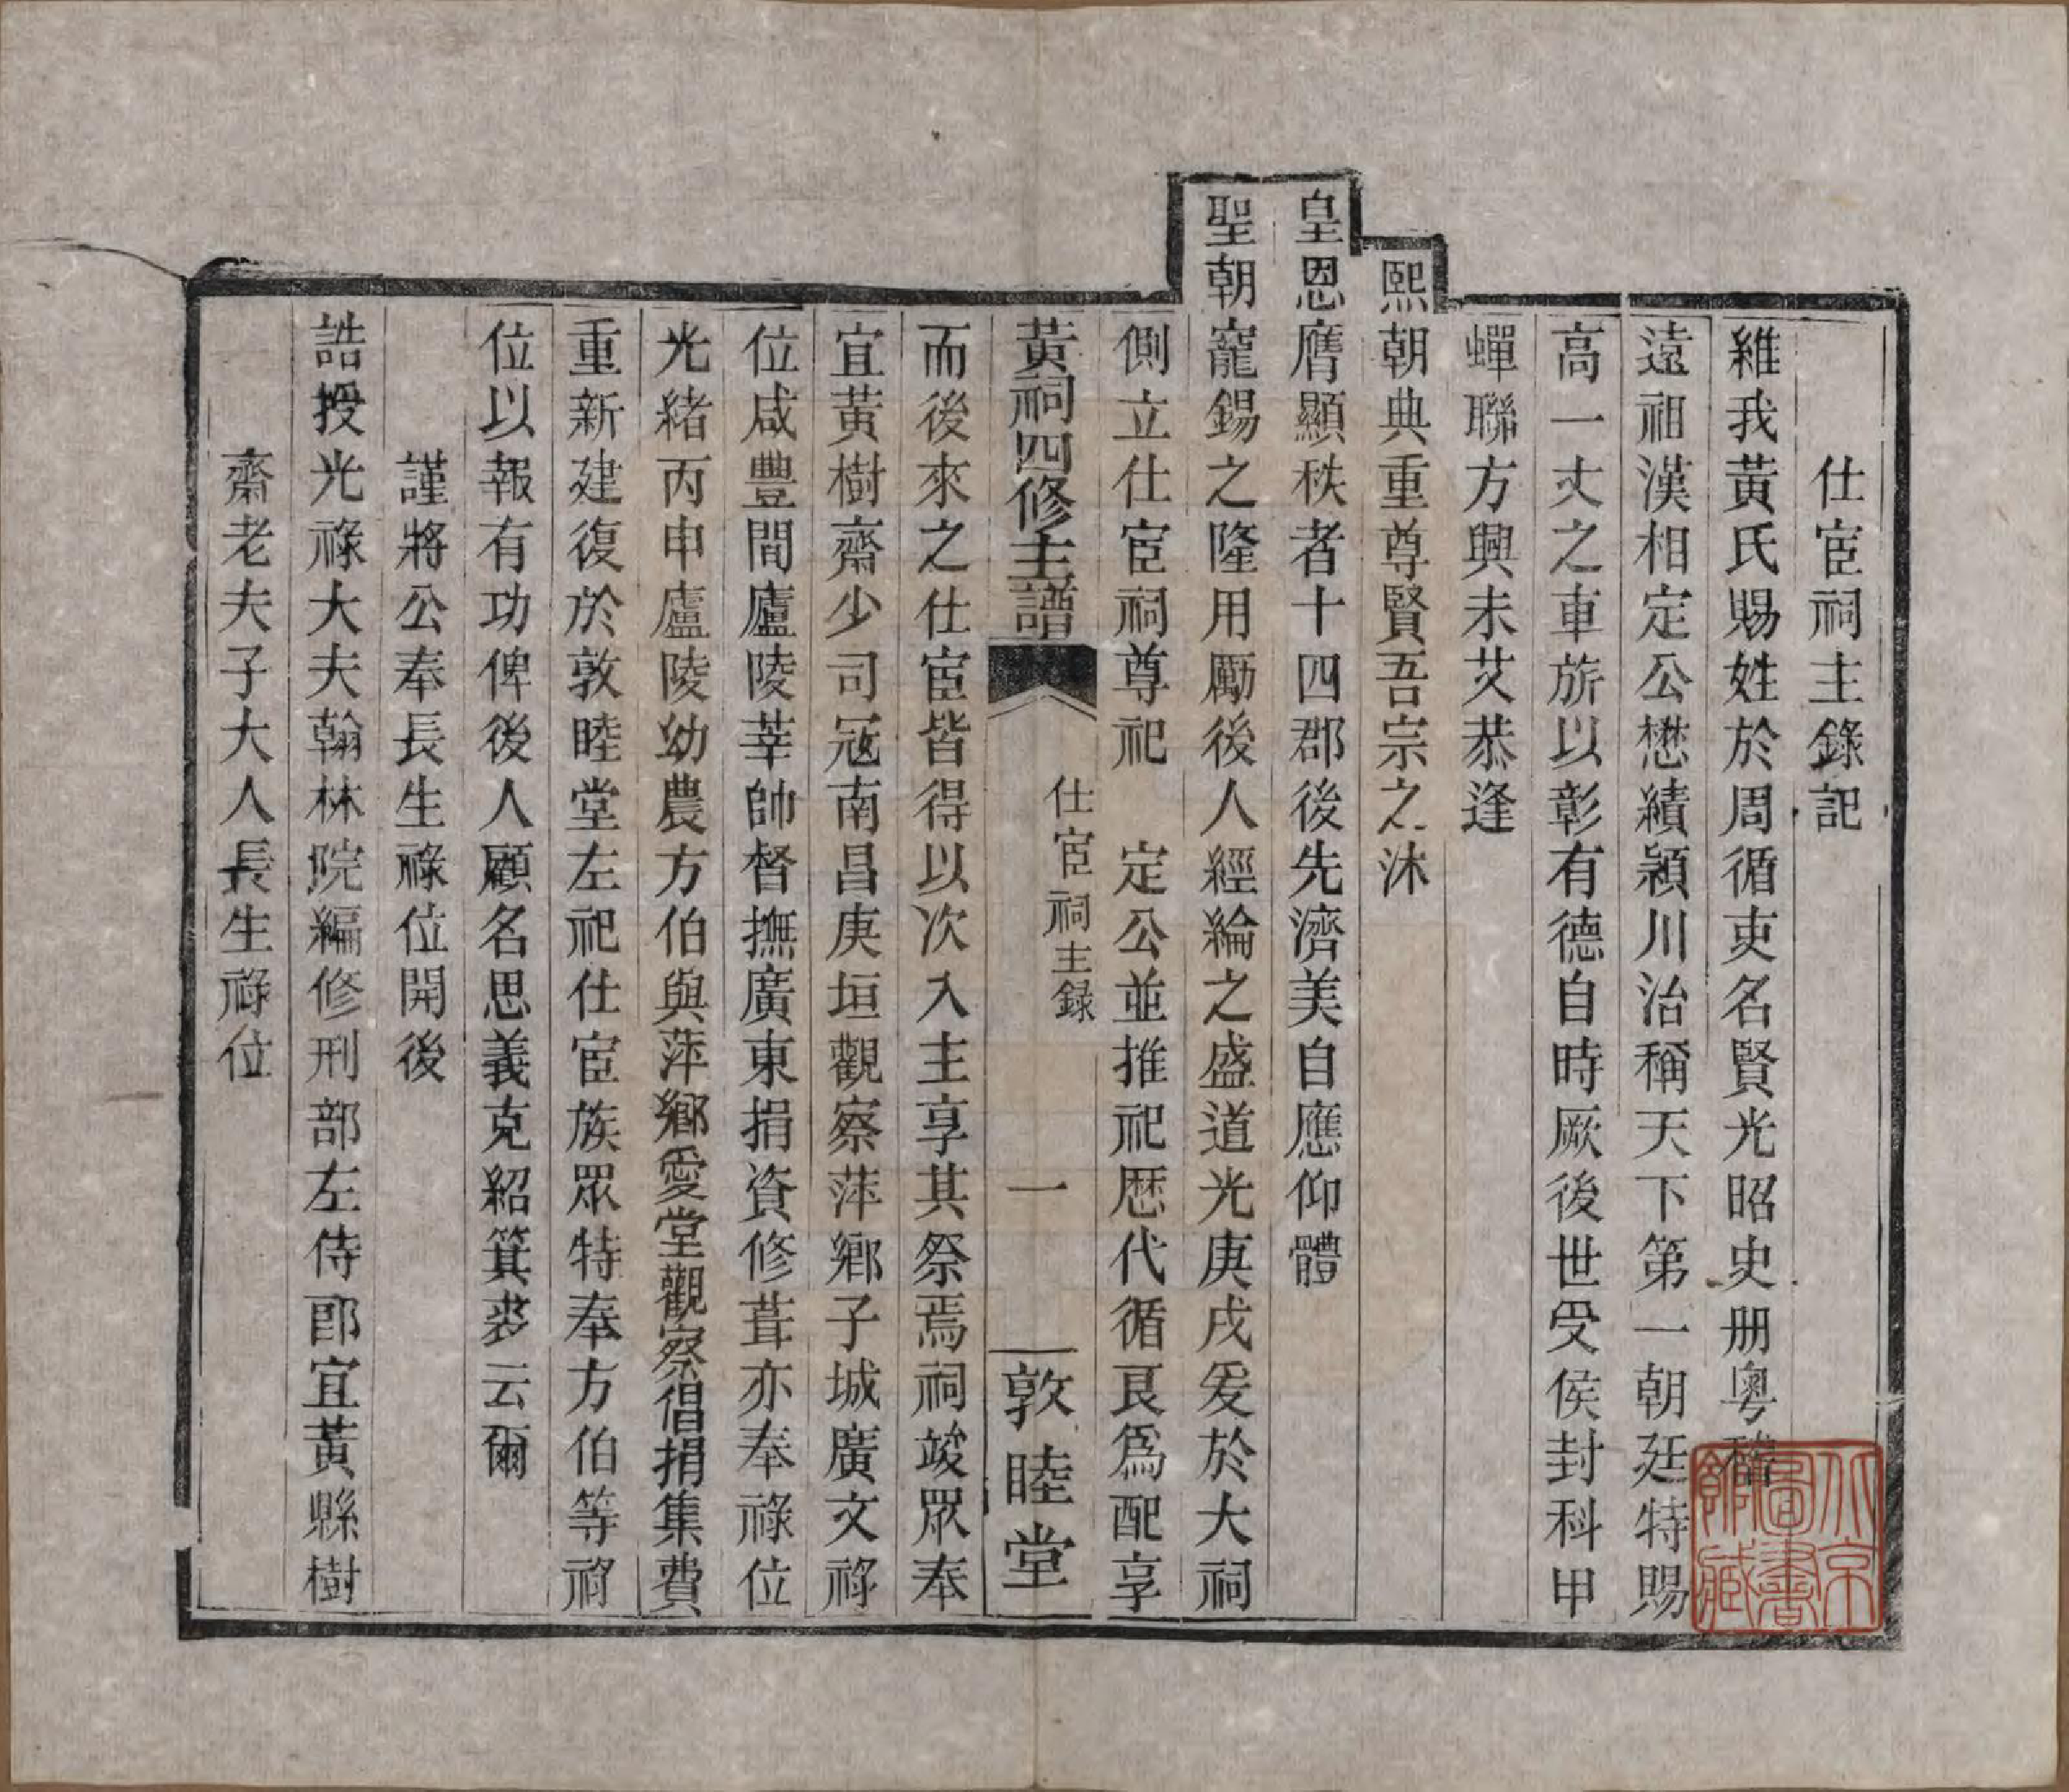 仕宦祠主錄記
維我黃氏賜姓於周循吏名賢光昭史册粵稽
遠祖漢相定公懋績潁川治稱天下第一朝廷特賜
高一丈之車旂以彰有德自時厥後世受侯封科甲
蟬聯方興未艾恭逢
熙朝典重尊賢吾宗之沐
皇恩膺顯秩者十四郡後先濟美自應仰體
聖朝寵錫之隆用勵後人經綸之盛道光庚戌爰於大祠
側立仕宦祠尊祀　定公並推祀歷代循良爲配享
黃祠四修主譜　仕宦祠主錄　一　敦睦堂
而後來之仕宦皆得以次入主享其祭焉祠竣眾奉
宜黃樹齋少司冦南昌庚垣觀察萍鄉子城廣文祿
位咸豐間廬陵莘帥督撫廣東捐資修葺亦奉祿位
光緒丙申廬陵幼農方伯與萍鄉愛堂觀察倡捐集費
重新建復於敦睦堂左祀仕宦族眾特奉方伯等祿
位以報有功俾後人顧名思義克紹箕裘云爾
謹將公奉長生祿位開後
誥授光祿大夫翰林院編修刑部左侍郎宜黃縣樹
齋老夫子大人長生祿位
北京
圖書
館藏